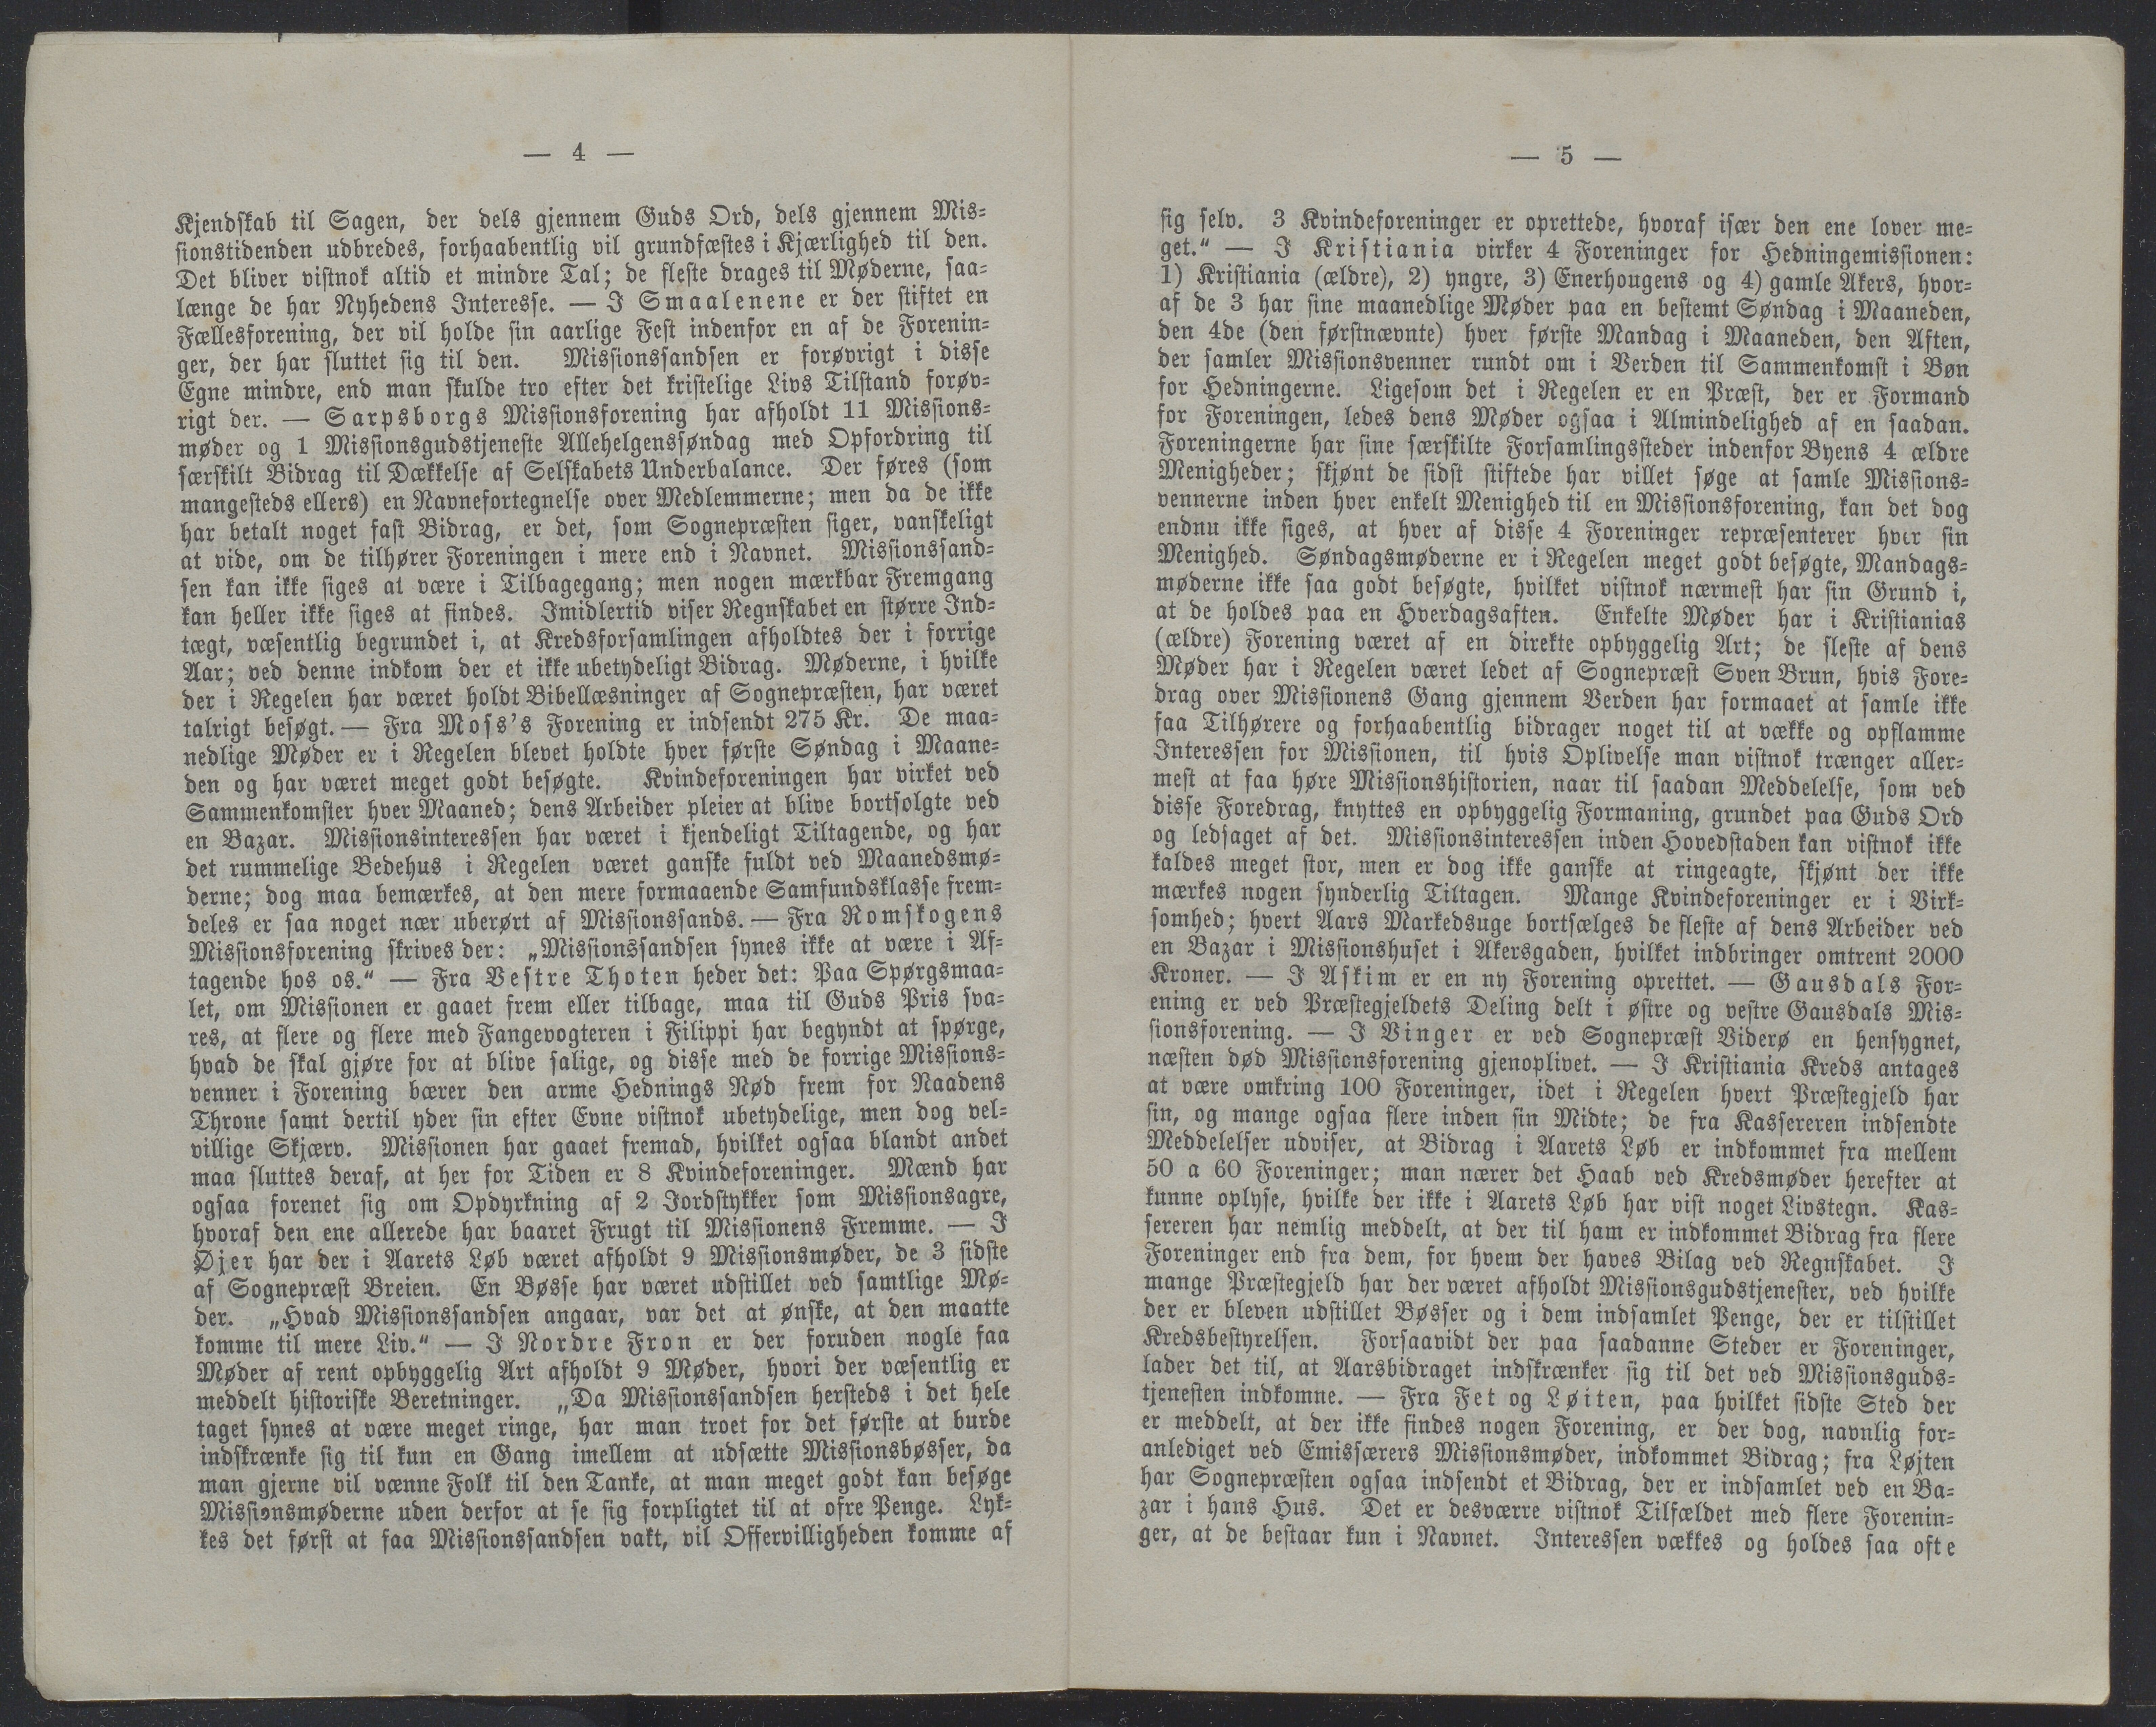 — 4 —
Kjendskab til Sagen, der dels gjennem Guds Ord, dels gjennem Mis-
sionstidenden udbredes, forhaabentlig vil grundfæstes i Kjærlighed til den.
Det bliver vistnok altid et mindre Tal; de fleste drages til Møderne, saa-
længe de har Nyhedens Interesse. — I Smaalenene er der stiftet en
Fællesforening, der vil holde sin aarlige Fest indenfor en af de Forenin-
ger, der har sluttet sig til den. Missionssandsen er forøvrigt i disse
Egne mindre, end man skulde tro efter det kristelige Livs Tilstand forøv-
rigt der. — Sarpsborgs Missionsforening har afholdt 11 Missions-
møder og 1 Missionsgudstjeneste Allehelgenssøndag med Opfordring til
særskilt Bidrag til Dækkelse af Selskabets Underbalance. Der føres (som
mangesteds ellers) en Navnefortegnelse over Medlemmerne; men da de ikke
har betalt noget fast Bidrag, er det, som Sognepræsten siger, vanskeligt
at vide, om de tilhører Foreningen i mere end i Navnet. Missionssand-
sen kan ikke siges at være i Tilbagegang; men nogen mærkbar Fremgang
kan heller ikke siges at findes. Imidlertid viser Regnskabet en større Ind-
tægt, væsentlig begrundet i, at Kredsforsamlingen afholdtes der i forrige
Aar; ved denne indkom der et ikke ubetydeligt Bidrag. Møderne, i hvilke
der i Regelen har været holdt Bibellæsninger af Sognepræsten, har været
talrigt besøgt. — Fra Moss's Forening er indsendt 275 Kr. De maa-
nedlige Møder er i Regelen blevet holdte hver første Søndag i Maane-
den og har været meget godt besøgte. Kvindeforeningen har virket ved
Sammenkomster hver Maaned; dens Arbeider pleier at blive bortsolgte ved
en Bazar. Missionsinteressen har været i kjendeligt Tiltagende, og har
det rummelige Bedehus i Regelen været ganske fuldt ved Maanedsmø-
derne; dog maa bemærkes, at den mere formaaende Samfundsklasse frem-
deles er saa noget nær uberørt af Missionssands. — Fra Romskogens
Missionsforening skrives der: „Missionssandsen synes ikke at være i Af-
tagende hos os.“ — Fra Vestre Thoten heder det: Paa Spørgsmaa-
let, om Missionen er gaaet frem eller tilbage, maa til Guds Pris sva-
res, at flere og flere med Fangevogteren i Filippi har begyndt at spørge,
hvad de skal gjøre for at blive salige, og disse med de forrige Missions-
venner i Forening bærer den arme Hednings Nød frem for Naadens
Throne samt dertil yder sin efter Evne vistnok ubetydelige, men dog vel-
villige Skjærv. Missionen har gaaet fremad, hvilket ogsaa blandt andet
maa sluttes deraf, at her for Tiden er 8 Kvindeforeninger. Mænd har
ogsaa forenet sig om Opdyrkning af 2 Jordstykker som Missionsagre,
hvoraf den ene allerede har baaret Frugt til Missionens Fremme. — I
Øjer har der i Aarets Løb været afholdt 9 Missionsmøder, de 3 sidste
af Sognepræst Breien. En Bøsse har været udstillet ved samtlige Mø-
der. „Hvad Missionssandsen angaar, var det at ønske, at den maatte
komme til mere Liv.“ — I Nordre Fron er der foruden nogle faa
Møder af rent opbyggelig Art afholdt 9 Møder, hvori der væsentlig er
meddelt historiske Beretninger. „Da Missionssandsen hersteds i det hele
taget synes at være meget ringe, har man troet for det første at burde
indskrænke sig til kun en Gang imellem at udsætte Missionsbøsser, da
man gjerne vil vænne Folk til den Tanke, at man meget godt kan besøge
Missionsmøderne uden derfor at se sig forpligtet til at ofre Penge. Lyk-
kes det først at faa Missionssandsen vakt, vil Offervilligheden komme af
— 5 —
sig selv. 3 Kvindeforeninger er oprettede, hvoraf især den ene lover me-
get.“ — I Kristiania virker 4 Foreninger for Hedningemissionen:
1) Kristiania (ældre), 2) yngre, 3) Enerhougens og 4) gamle Akers, hvor-
af de 3 har sine maanedlige Møder paa en bestemt Søndag i Maaneden,
den 4de (den førstnævnte) hver første Mandag i Maaneden, den Aften,
der samler Missionsvenner rundt om i Verden til Sammenkomst i Bøn
for Hedningerne. Ligesom det i Regelen er en Præst, der er Formand
for Foreningen, ledes dens Møder ogsaa i Almindelighed af en saadan.
Foreningerne har sine særskilte Forsamlingssteder indenfor Byens 4 ældre
Menigheder; skjønt de sidst stiftede har villet søge at samle Missions-
vennerne inden hver enkelt Menighed til en Missionsforening, kan det dog
endnu ikke siges, at hver af disse 4 Foreninger repræsenterer hver sin
Menighed. Søndagsmøderne er i Regelen meget godt besøgte, Mandags-
møderne ikke saa godt besøgte, hvilket vistnok nærmest har sin Grund i,
at de holdes paa en Hverdagsaften. Enkelte Møder har i Kristianias
(ældre) Forening været af en direkte opbyggelig Art; de fleste af dens
Møder har i Regelen været ledet af Sognepræst Sven Brun, hvis Fore-
drag over Missionens Gang gjennem Verden har formaaet at samle ikke
faa Tilhørere og forhaabentlig bidrager noget til at vække og opflamme
Interessen for Missionen, til hvis Oplivelse man vistnok trænger aller-
mest at faa høre Missionshistorien, naar til saadan Meddelelse, som ved
disse Foredrag, knyttes en opbyggelig Formaning, grundet paa Guds Ord
og ledsaget af det. Missionsinteressen inden Hovedstaden kan vistnok ikke
kaldes meget stor, men er dog ikke ganske at ringeagte, skjønt der ikke
mærkes nogen synderlig Tiltagen. Mange Kvindeforeninger er i Virk-
somhed; hvert Aars Markedsuge bortsælges de fleste af dens Arbeider ved
en Bazar i Missionshuset i Akersgaden, hvilket indbringer omtrent 2000
Kroner. — I Askim er en ny Forening oprettet. — Gausdals For-
ening er ved Præstegjeldets Deling delt i østre og vestre Gausdals Mis-
sionsforening. — I Vinger er ved Sognepræst Viderø en hensygnet,
næsten død Missionsforening gjenoplivet. — I Kristiania Kreds antages
at være omkring 100 Foreninger, idet i Regelen hvert Præstegjeld har
sin, og mange ogsaa flere inden sin Midte; de fra Kassereren indsendte
Meddelelser udviser, at Bidrag i Aarets Løb er indkommet fra mellem
50 a 60 Foreninger; man nærer det Haab ved Kredsmøder herefter at
kunne oplyse, hvilke der ikke i Aarets Løb har vist noget Livstegn. Kas-
sereren har nemlig meddelt, at der til ham er indkommet Bidrag fra flere
Foreninger end fra dem, for hvem der haves Bilag ved Regnskabet. I
mange Præstegjeld har der været afholdt Missionsgudstjenester, ved hvilke
der er bleven udstillet Bøsser og i dem indsamlet Penge, der er tilstillet
Kredsbestyrelsen. Forsaavidt der paa saadanne Steder er Foreninger,
lader det til, at Aarsbidraget indskrænker sig til det ved Missionsguds-
tjenesten indkomne. — Fra Fet og Løiten, paa hvilket sidste Sted der
er meddelt, at der ikke findes nogen Forening, er der dog, navnlig for-
anlediget ved Emissærers Missionsmøder, indkommet Bidrag; fra Løjten
har Sognepræsten ogsaa indsendt et Bidrag, der er indsamlet ved en Ba-
zar i hans Hus. Det er desværre vistnok Tilfældet med flere Forenin-
ger, at de bestaar kun i Navnet. Interessen vækkes og holdes saa ofte